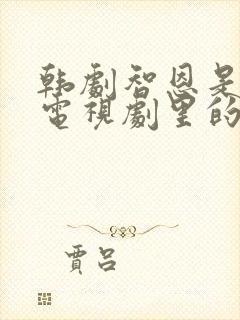 韩劇智恩是
電視劇里的
賈呂